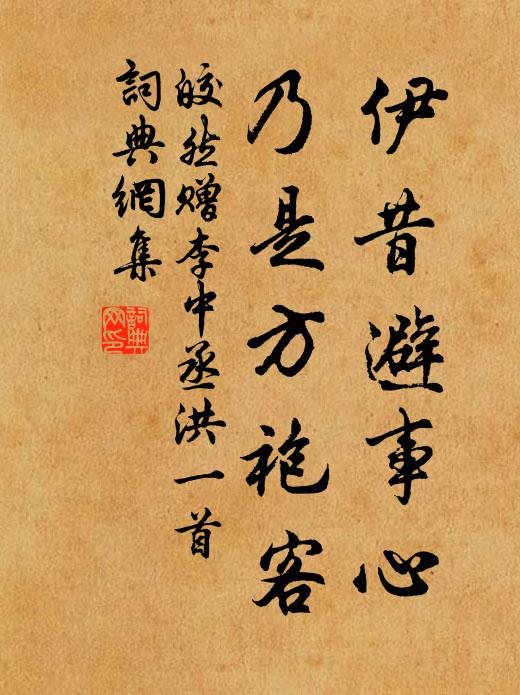 伊昔避事心
乃是方袍客
皎然赠李中丞洪一首
詞典網集
詞典网印